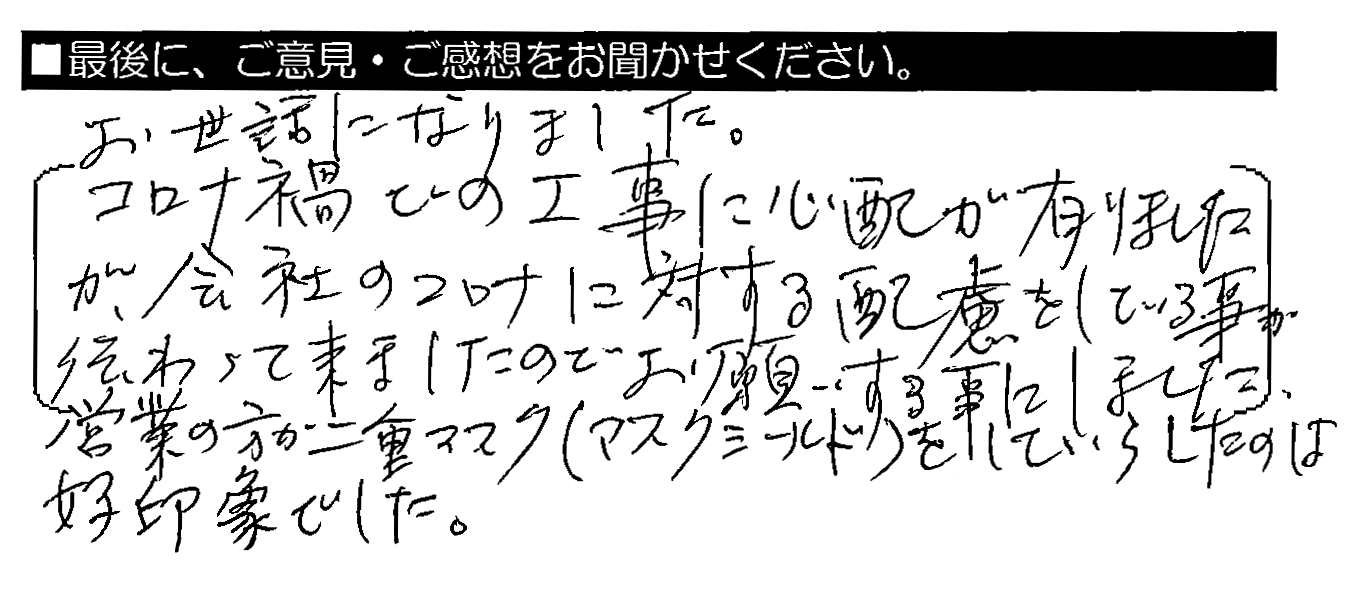 ■最後に、ご意見・ご感想をお聞かせください。
お世話になりました。
コロナ禍での工事に心配が有りました
が、会社のコロナに対する配慮をしている事が
伝わって来ましたのでお願いする事にしました、
営業の方が二重マスク(マスクシールド)をしていらしたのは
好印象でした。